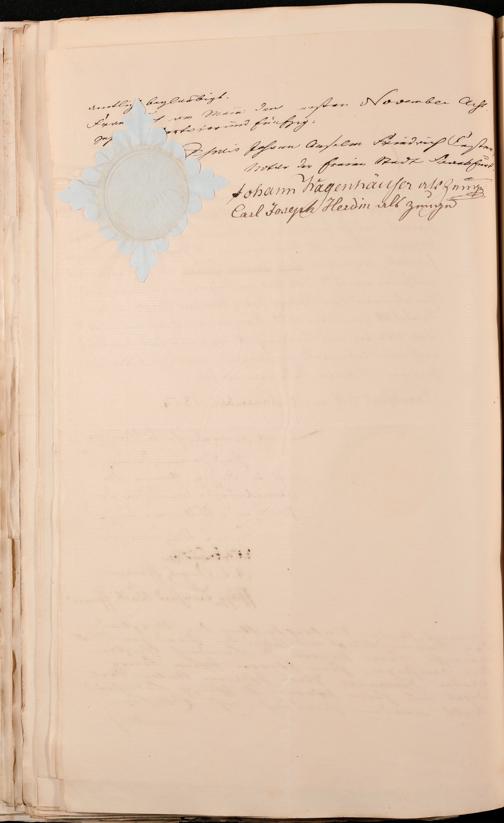 amtlich beglaubigt.
am Main den ersten November Acht
vierundfünfzig.
Johann Anselm Friedrich
Notar der freien Stadt Frankfurt
Johann Hagenhäuser als Zeuge
Carl Joseph Herdin als Zeuge